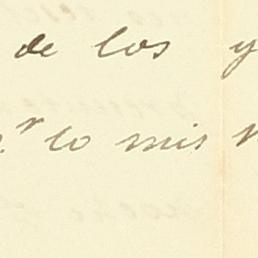 de los y
lo mis